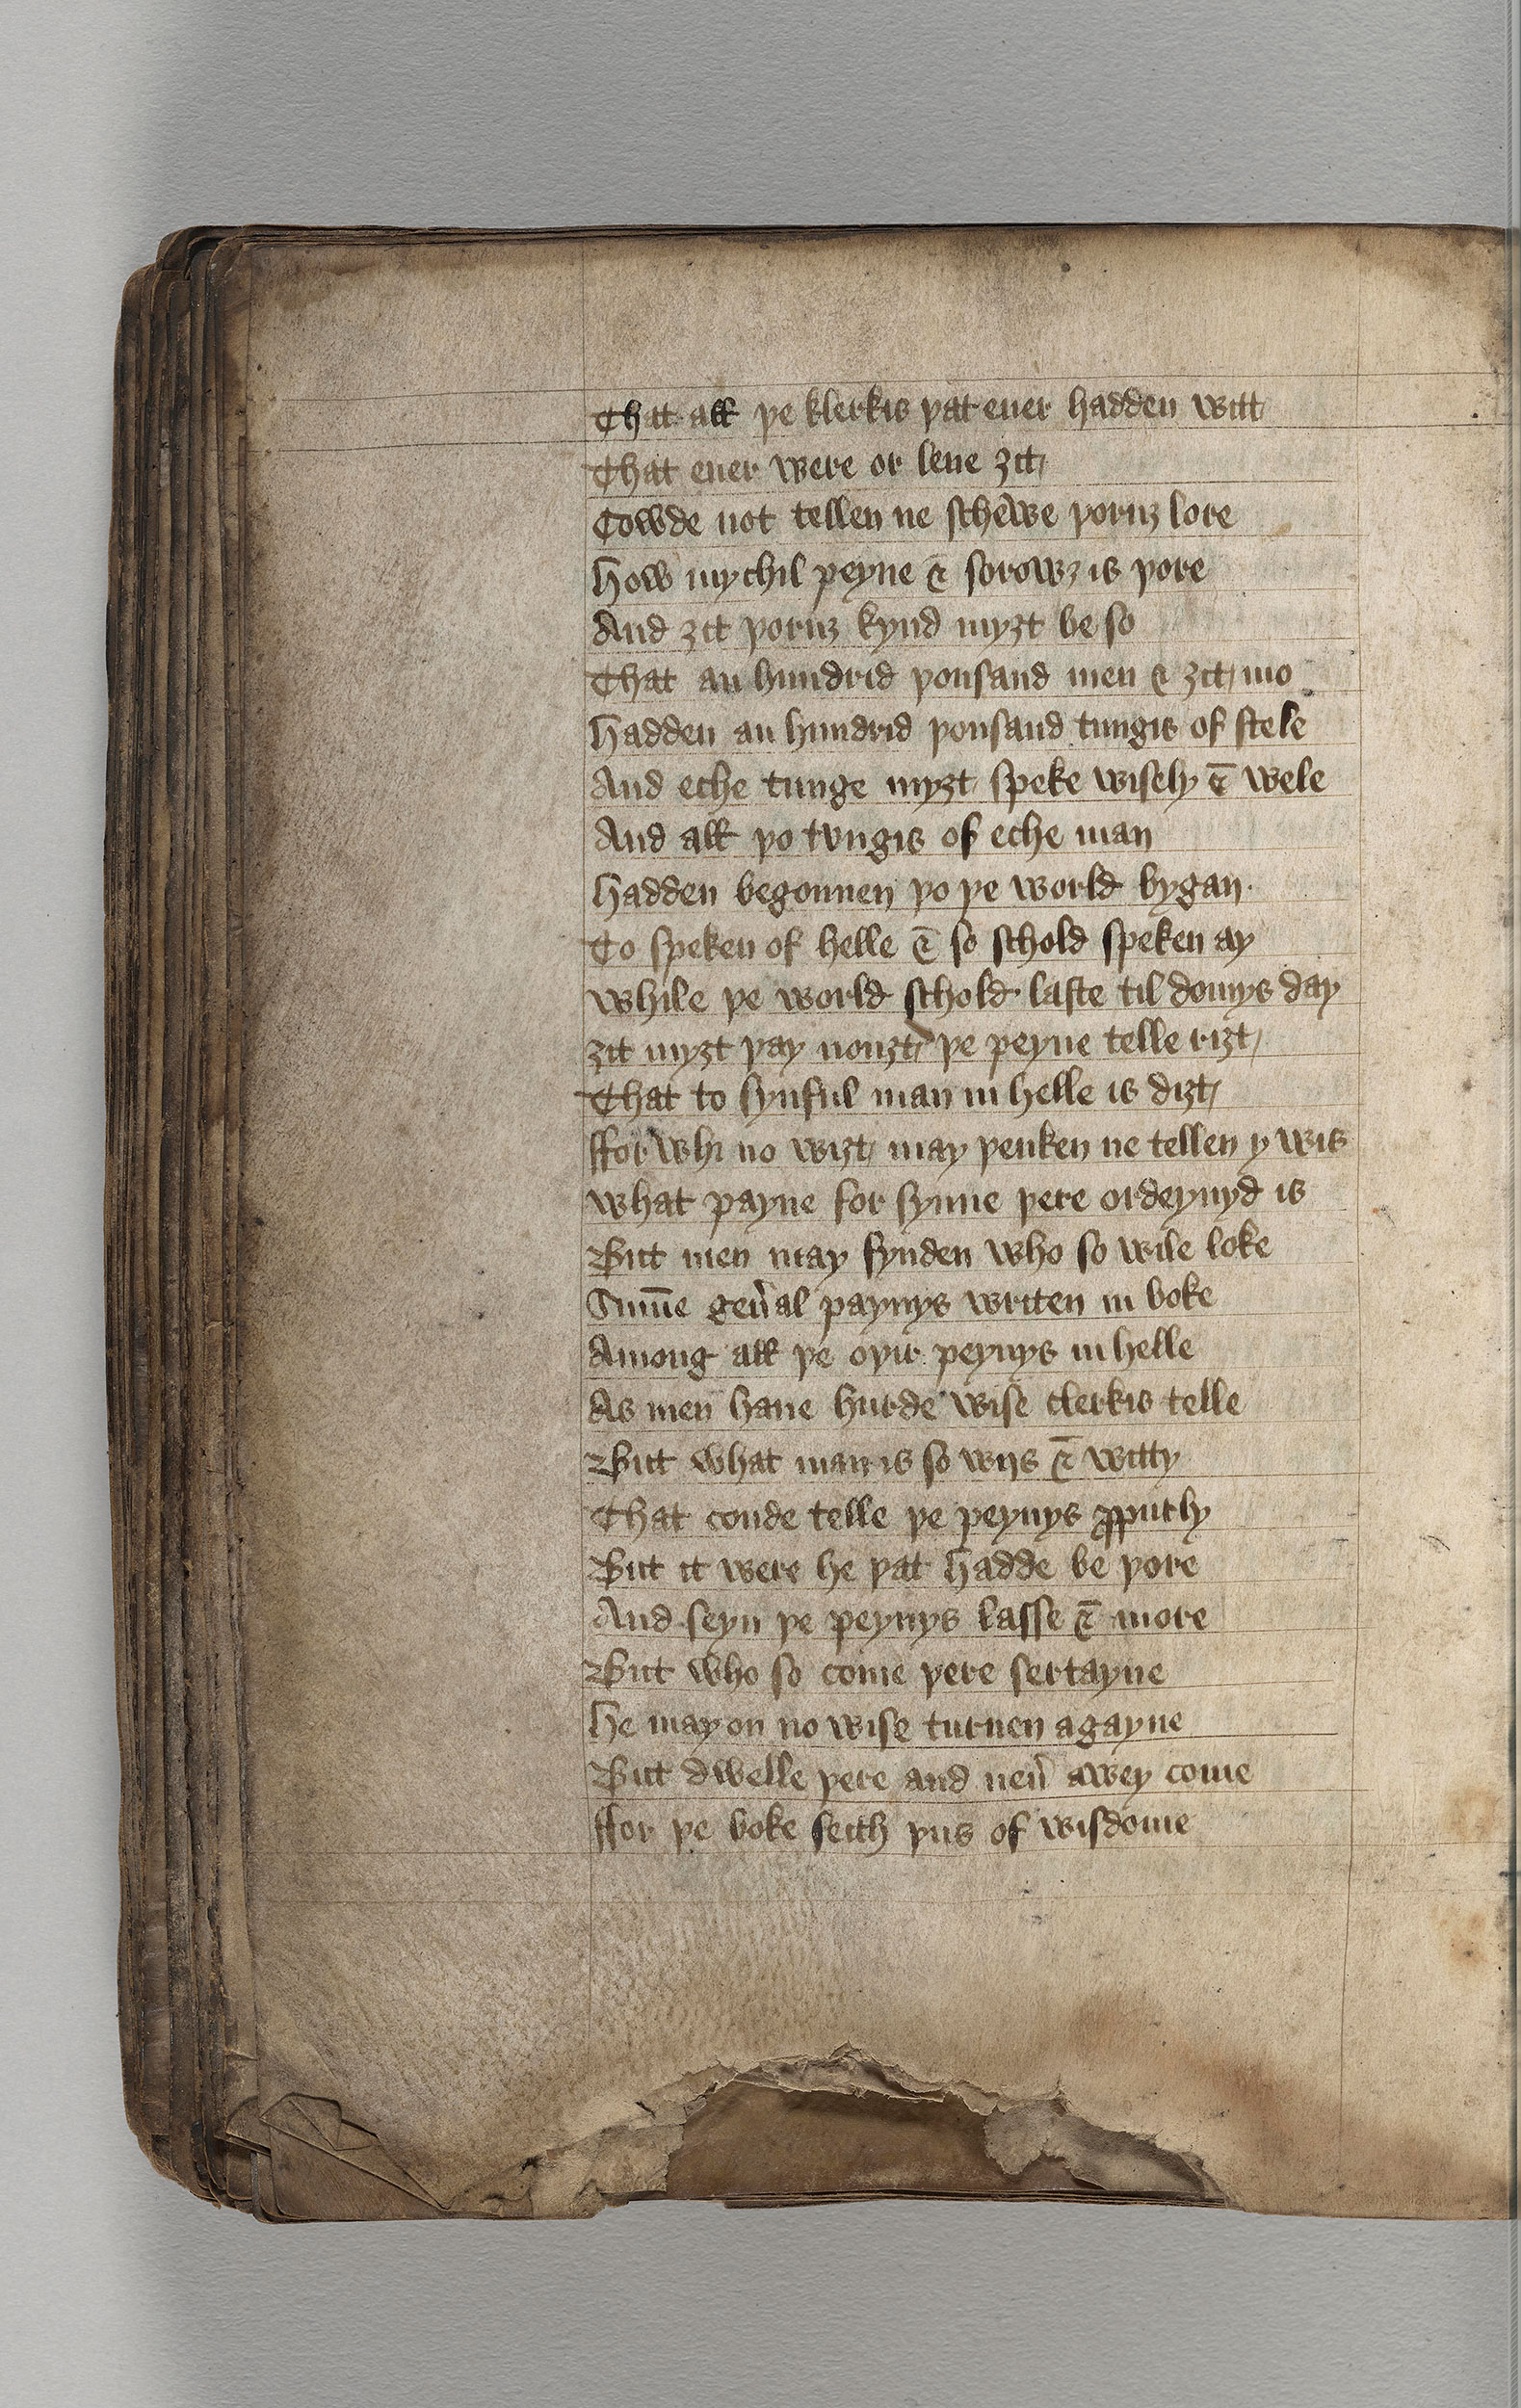 That all þe klerkis þat euer hadden witt
That euer were or leue ȝit
Cowde not tellen ne schewe þoruȝ lore
How mychil peyne & sorowȝ is þore
And ȝit þoruȝ kynd myȝt be so
That an hundrid þousand men & ȝit mo
Hadden an hundrid þousand tungis of stele
And eche tunge myȝt speke wisely & wele
And all þo tvngis of eche man
Hadden begonnen þo þe world bygan
To speken of helle & so schold speken ay
While þe world schold laste til domys day
ȝit myȝt þay nouȝt þe peyne telle riȝt
That to synful man in helle is diȝt
ffor whi no wiȝt may þenken ne tellen y wis
What payne for synne þere ordeynyd is
But men may fynden who so wile loke
Sum̅e gen̉al paynys writen in boke
Among all þe oþir peynys in helle
As men haue hurde wise clerkis telle
But what man is so wijs & witty
That coude telle þe peynys ꝓpurly
But it were he þat hadde be þore
And seyn þe peynys lasse & more
But who so come þere sertayne
He may on no wise turnen agayne
But dwelle þere and neủ awey come
ffor þe boke seith þus of wisdome